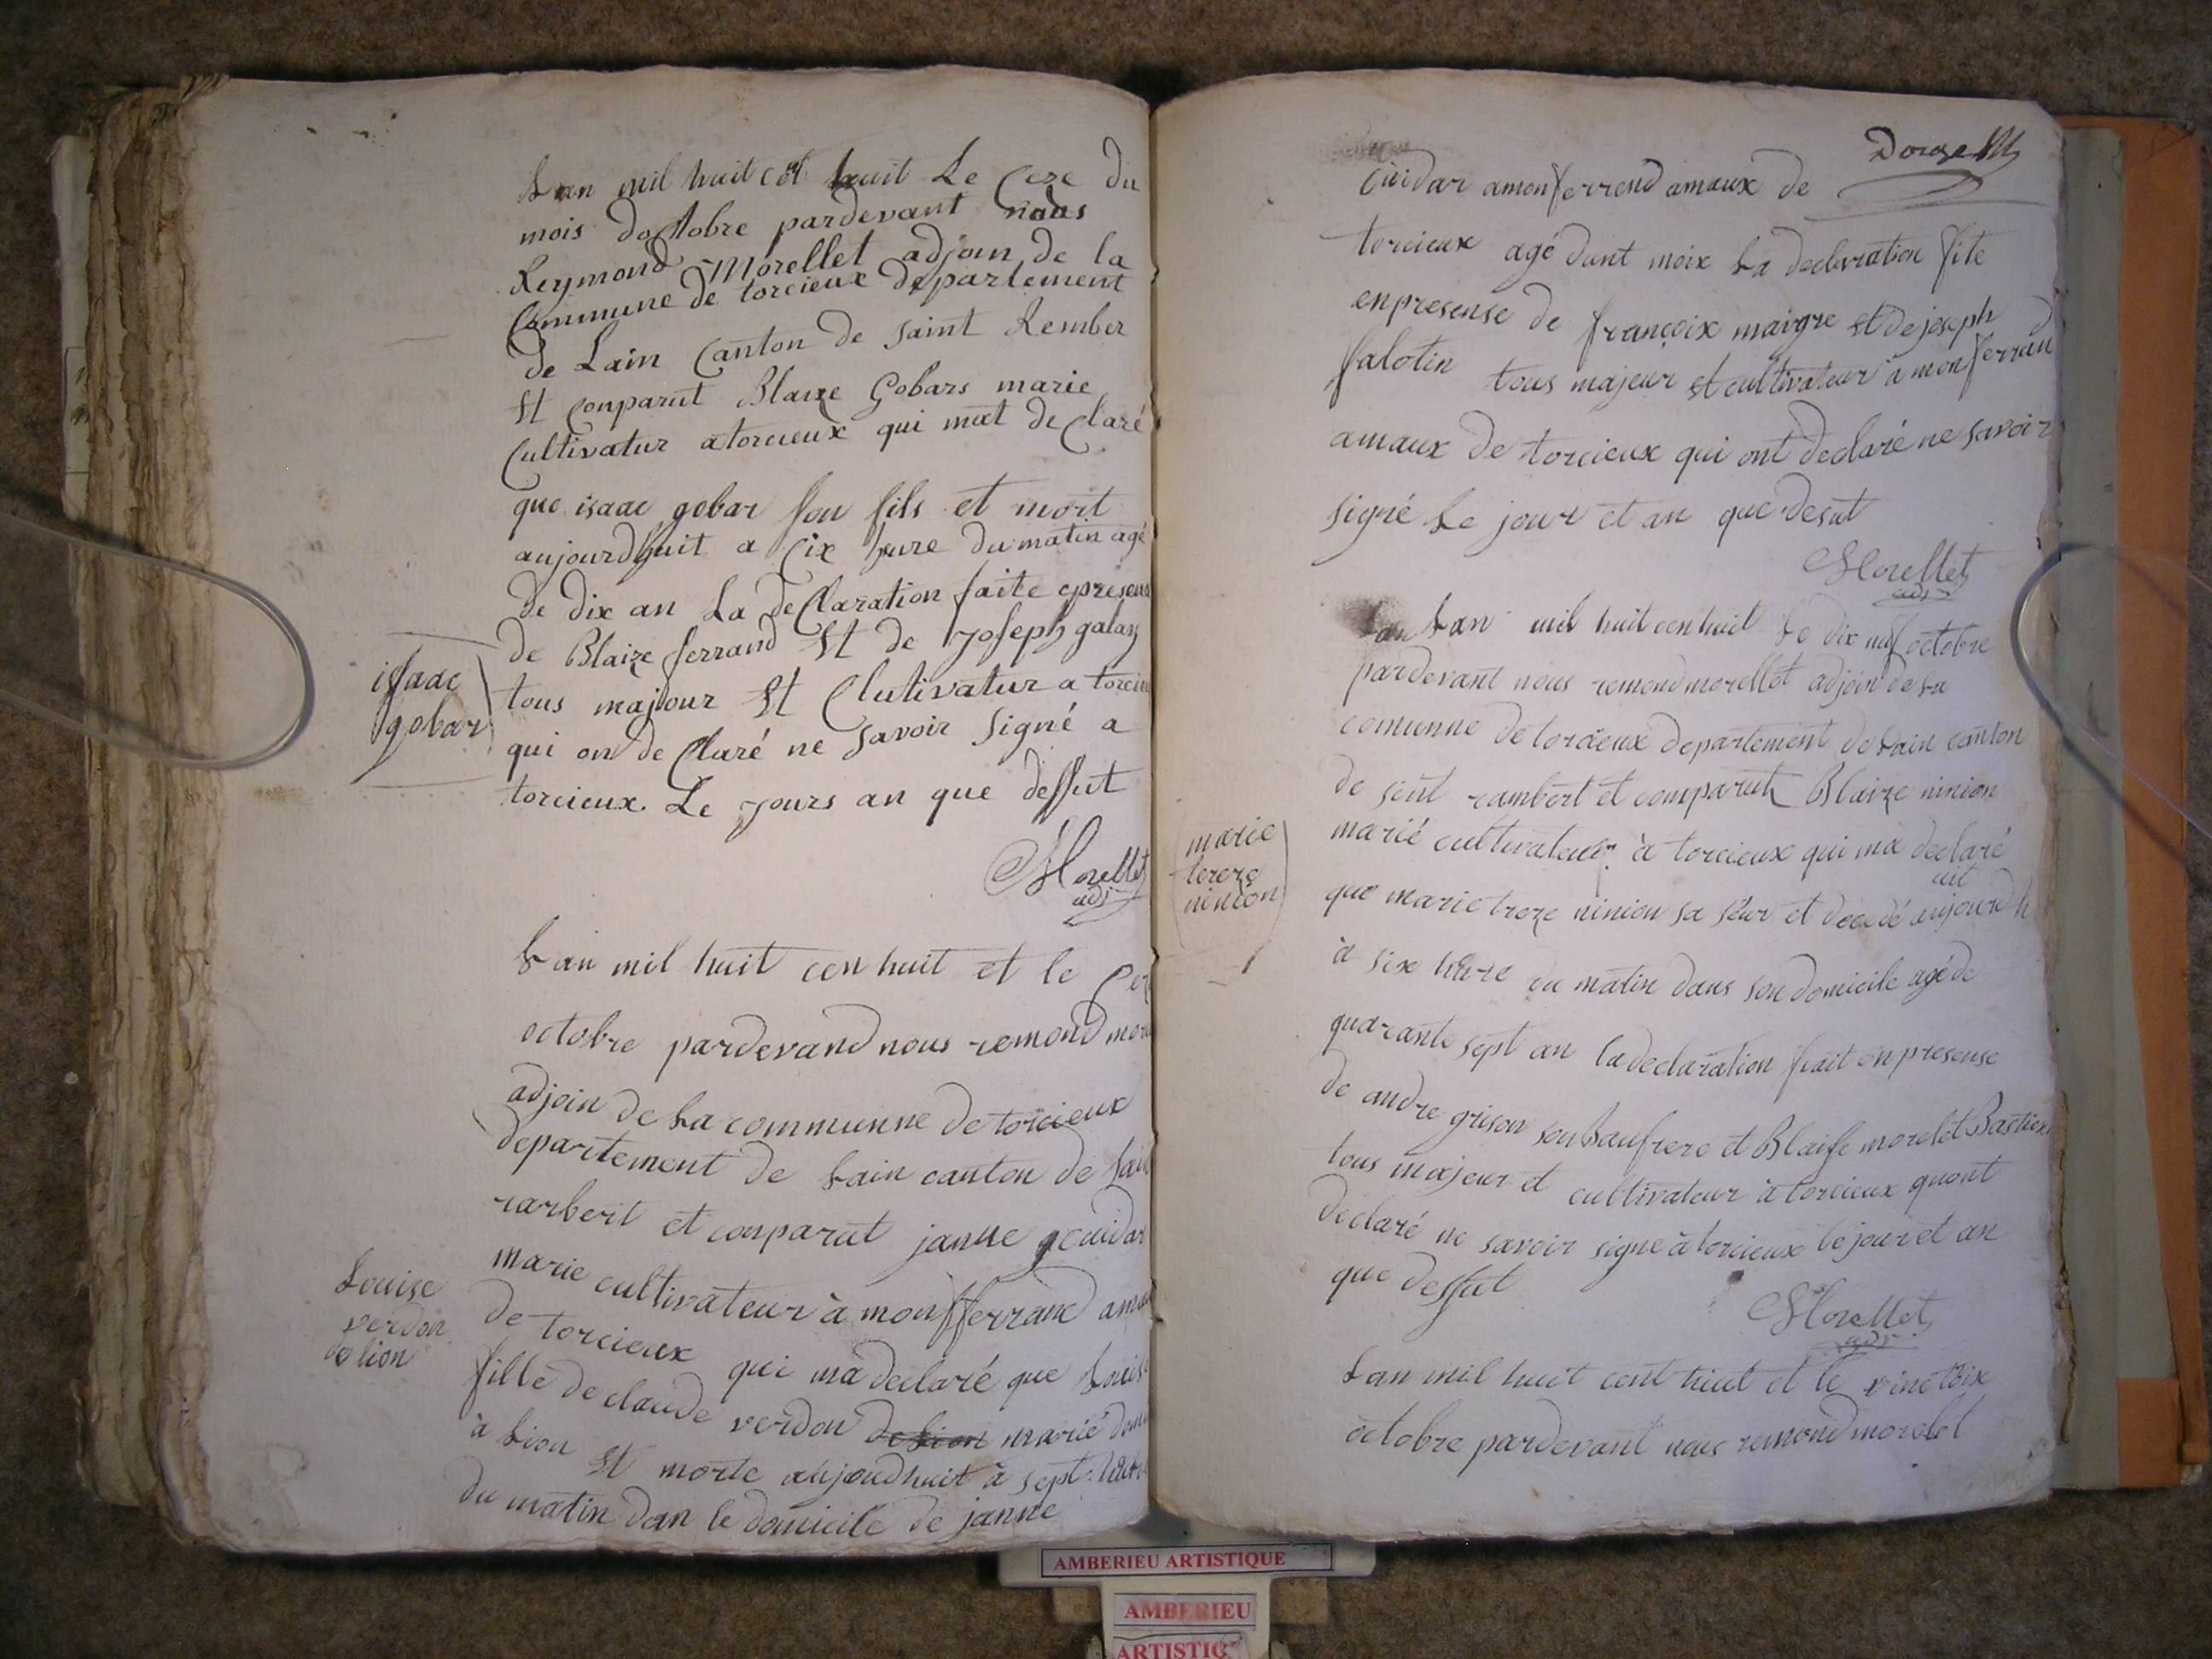 Lan mil huit cět huit Le Ceze du
mois doctobre pardevant nous
Reymond Morellet adjoin de la
Commune de torcieux departement
de Lain Canton de saint Rember
St Conparut Blaize Gobars marie
Cultivatur a torcieux qui mat de Claré
que isaac gobar son fils et mort
aujourdhuit a Cix hure du matin agé
de dix an La deClaration faite epresens
de Blaize ferrand St de Joseph galay
issaac
gobar
tous majour St Clutivatur a torcieu
qui on de Claré ne savoir Signé a
torcieux. Le jours an que dessut
Morellet
adj
Lan mil huit cen huit et le Ceze
octobre pardevand nous remond more
adjoin de La communne de torcieux
departement de Lain canton de Sain
rarbert et conparut janne guidar
marie cultivateur à monfferrand amau
Louise
verdon
de lion
de torcieux qui ma declaré que Louis
fille de claude verdon de Lion marié dem
à Lion St morte aujourdhuit à sept hure
du matin dan le domicile de janne
Cuidar amonferrend amaux de
torcieux agé dunt moix La declaration fite
enpresense de françoix maigre St de joseph
falotin tous majeur St cultivateur à monferrand
amaux de torcieux qui ont declaré ne savoir
signé Le jour et an que desut
Morellet
adj
Lan Lan mil huit cen huit Le dix nuf octobre
pardevant nous remond morellet adjoin de La
comunne de torcieux departement de Lain canton
de sent rambert et comparut Blaize ninion
marie
tereze
ninion
marié cultivateur à torcieux qui ma declaré
que marie treze ninion sa seur et decedé aujourdh
uit
à six hure du matin dans son domicile agé de
quarante sept an la declaration frait en presense
de andre grison son Baufrere et Blaise morelet Bastien
tous majeur et cultivateur à torcieux quont
declaré ne savoir signe à torcieux le jour et an
que dessut
Morellet
adj
Lan mil huit cent huit et le vinctoix
octobre pardevant nous remond morelet
AMBERIEU ARTISTIQUE
AMBERIEU
ARTISTIQ